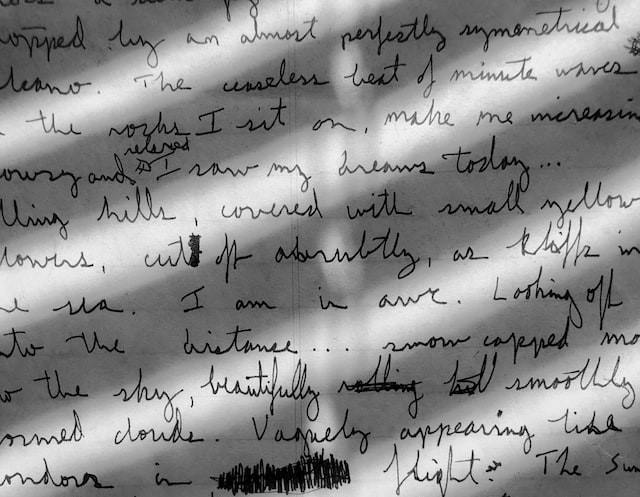 topped by an almost perfectly symmetrical
lcano. The ceaseless beat of minute waves
the rocks I sit on, make me increasin
relaxed
owsy and I saw my dreams today...
lling hills, covered with small yellow
lowers, cut off abrubtly, as kliffs in
he sea. I am in awe. Looking off
nto the distance.... snow capped mo
o the sky, beautifully smoothly
ormed clouds. Vaguely appearing like
ondors in flight. The sun